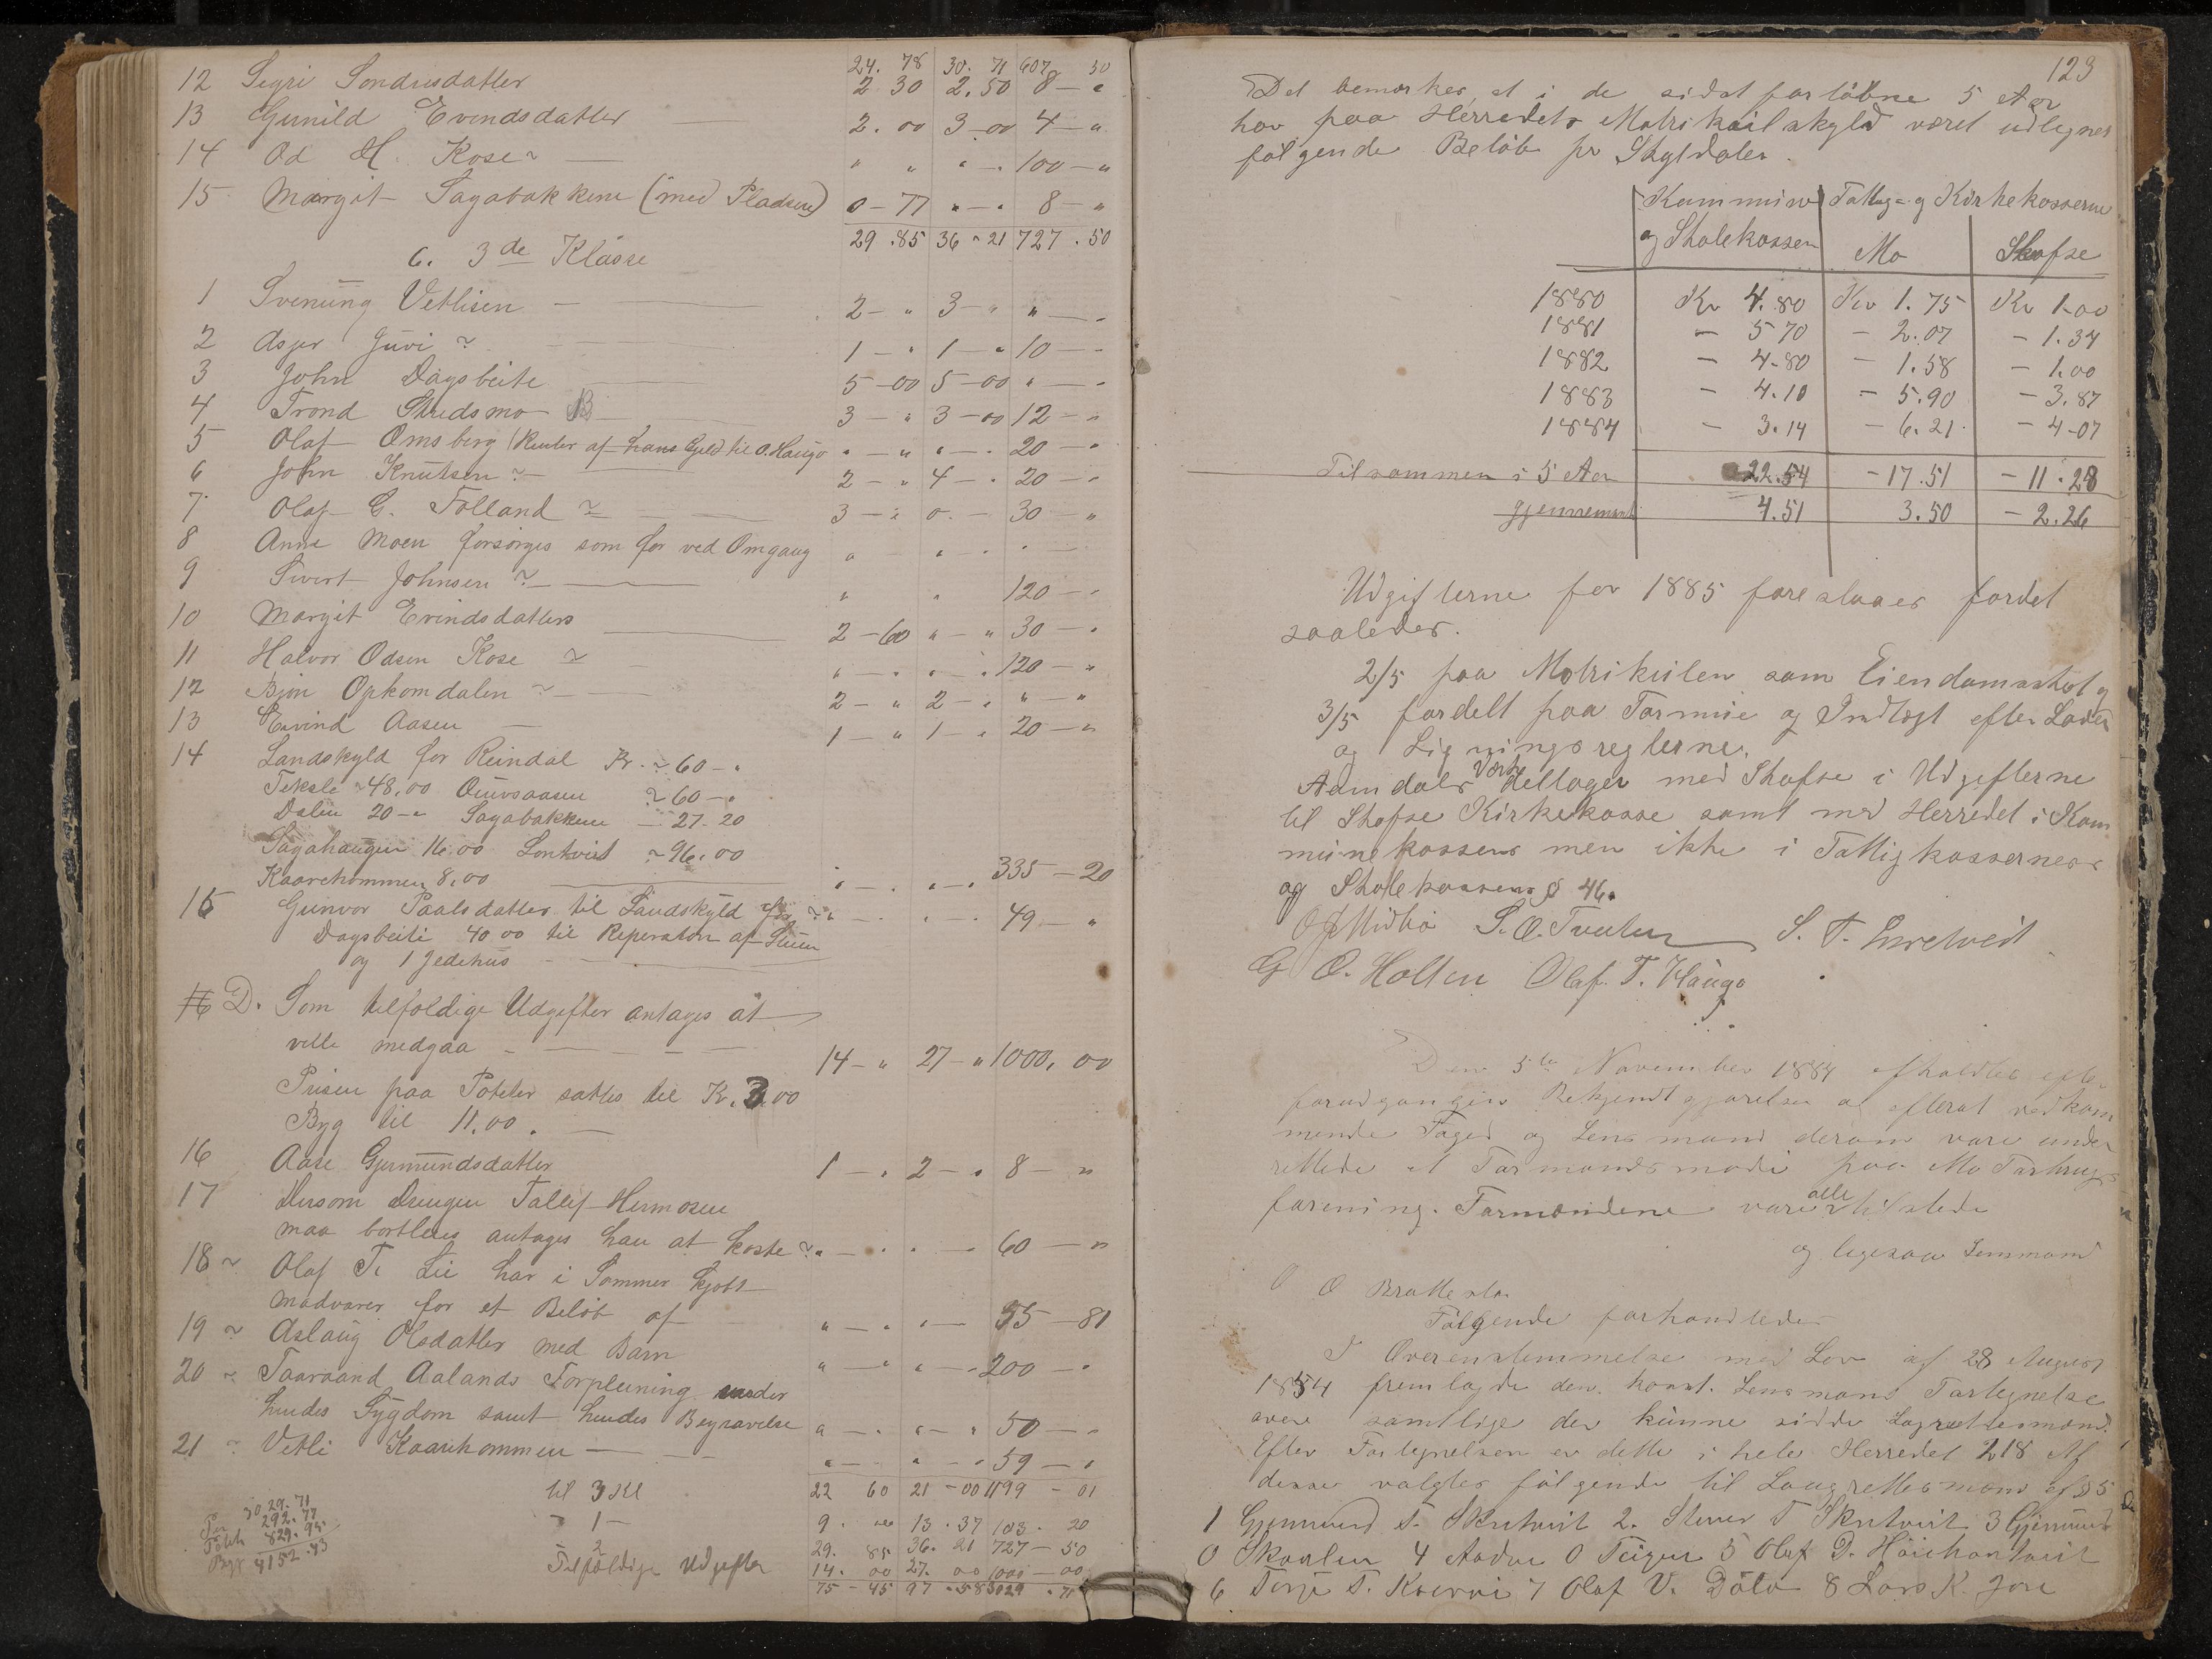 24. 78 30. 71 607 50
12 Sigri Sondresdatter 2 30 2.50 8 — "
13 Gunild Evindsdatter — 2. 00 3. 00 4 — "
14 Od H. Kose ~ — " " " — . 100 — "
15 Margit Sagabakkene (med Pladsen) 0 — 77 " — " 8 — "
29 . 85 36 " 21 727 . 50
C. 3de Klasse
1 Svenung Vetlisen — 2 — " 3 — " " — "
2 Asjer Juvi ~ 1 — " 1 — " 10 — "
3 John Dagsbeite 5 — 00 5 — 00 " — "
4 Trond Skredsmo 3 — " 3 — 00 12 — "
5 Olaf Omsberg (Renter af hans Gjeld til O. Haugo " — " " — . 20 — "
6 John Knutsen ~ 2 — " 4 — . 20 — "
7 Olaf G. Folland ~ 3 — " 0 . — 30 — "
8 Anne Moen forsørges som før ved Omgang " — " — . " —
9 Sivert Johnsen ~ " " 120 — "
10 Margit Evindsdatters 2 — 60 " — " 30 — "
11 Halvor Odsen Kose ~ " — . " — . 120 — "
12 Bjøn Opkomdalen ~ 2 — " 2 — . " — "
13 Eivind Aasen — 1 — " 1 — . 20 — "
14 Landskyld for Reindal Kr. ~ 60 — "
Teksle ~ 48,00 Quivsaasen ~ 60 — "
Dalen 20 — " Sagabakkene — 27 . 20
Sagahaugen 16.00 Lontvit ~ 96.00
Kaarekommen 8,00 " — . " — . 335 — 20
15 Gunvor Paalsdatter til Landskyld for ~ " — . " — . 49 — "
Dagsbeiti 40 00 til Reperation af Stuen
og 1 Jedehus
D. Som tilfældige Udgifter antages at
ville medgaa — 14 — " 27 — " 1000, 00
Prisen paa Poteter sattes til Kr. 3.00
Byg til 11.00 .
16 Aase Gjermundsdatter 1 — . 2 — . 8 — "
17 Dersom Drengen Tallef Hermosen
maa bortleies antages han at koste ~ " — . " — 60 — "
18 ~ Olaf T. Lie har i Sommer kjøbt
madvarer for et Beløb af " — . " — 55 — 81
19 ~ Aslaug Olsdatter med Barn " — " " — . 200 — "
20 ~ Taaraand Aalands Forpleining under
hendes Sygdom samt hendes Begravelse " — . " — " 50 — "
21 ~ Vetli Kaarekommen — " — " — . 59 — "
til 3 Kl 22 60 21 — 00 1199 — 01
" 1 — 9 . 13 . 37 103 . 20
" 2 29. 85 36. 21 727 — 50
Tilfældige Udgifter 14. 00 27. 00 1000 — 00
75 — 45 97 . 58 3029 . 71
3029. 71
292. 77
Potet 829. 95
Byg 4152.43
123
Det bemærkes, at i de sidst forløbne 5 Aar
har paa Herredets Matrikailskyld været udlignes
følgende Beløb pr Skyldaler.
Kommune og Skolekassen Fattig- og Kirkekasserne
Mo Skafse
1880 Kr 4.80 Kr 1.75 Kr 1.00
1881 — 5 70 — 2.07 — 1.34
1882 — 4.80 — 1.58 — 1.00
1883 — 4.10 — 5.90 — 3.87
1884 — 3.14 — 6.21 — 4-07
Tilsammen i 5 Aar 22.54 — 17.51 — 11.28
gjennemsnit 4.51 3.50 — 2.26
Udgifterne for 1885 foreslaaes fordel
saaledes.
2/5 paa Matrikulen som Eiendomsskat og
3/5 fordelt paa Formue og Indtægt efter Loven
og Ligningsreglerne.
Aamdals Værk deltager med Skafse i Udgifterne
til Skafse Kirkekasse samt med Herredet i Kom
munekassens men ikke i Fattigkassernes
og Skolekassens § 46.
O J Midbø S. O. Tveiten S. T. Enretveit
G O. Holten Olaf. T. Haugo
Den 5te November 1884 afholdtes efter
forudgangen Bekjendtgjørelse og efterat vedkom
mende Foged og Lensmand derom vare under
rettede et Formandsmøde paa Mo Forbrugs
forening. Formændene vare alle tilstede
og ligesaa Lensmand
O Brattestaa
Følgende forhandledes
I Overenstemmelse med Lov af 28 August
1854 fremlagde den konst. Lensmand Fortegnelse
over samtlige der kunne sidde Lagrettesmænd.
Efter Fortegnelsen er dette i hele Herredet 218 Af
disse valgtes følgende til Laugrettesmænd af § 5
1 Gjermund T. Skutveit 2. Stener T Skutveit 3 Gjermund
O Skaalen 4 Aadne O Teigen 5 Olaf D. Høiehontveit
6 Torje T. Kverni 7 Olaf V. Dølo 8 Lars K. Jore